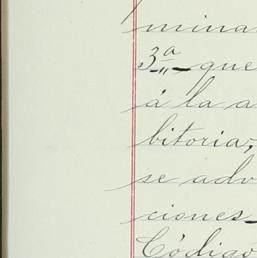 mina
3ª — que
á la a
bitoria,
se adv
ciones_
Código